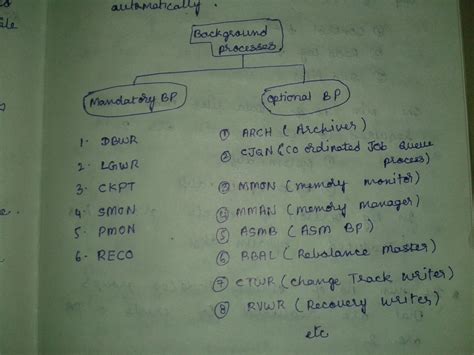 automatically.
Background
processes
Mandatory BP
Optional BP
1. DBWR
2. LGWR
3. CKPT
4. SMON
5. PMON
6. RECO
① ARCH (Archiver)
② CJQN (CO ordinated Job Queue
process)
③ MMON (memory monitor)
④ MMAN (Memory Manager)
⑤ ASMB (ASM BP)
⑥ RBAL (Rebalance Master)
⑦ CTWR (Change Track Writer)
⑧ RVWR (Recovery Writer)
etc